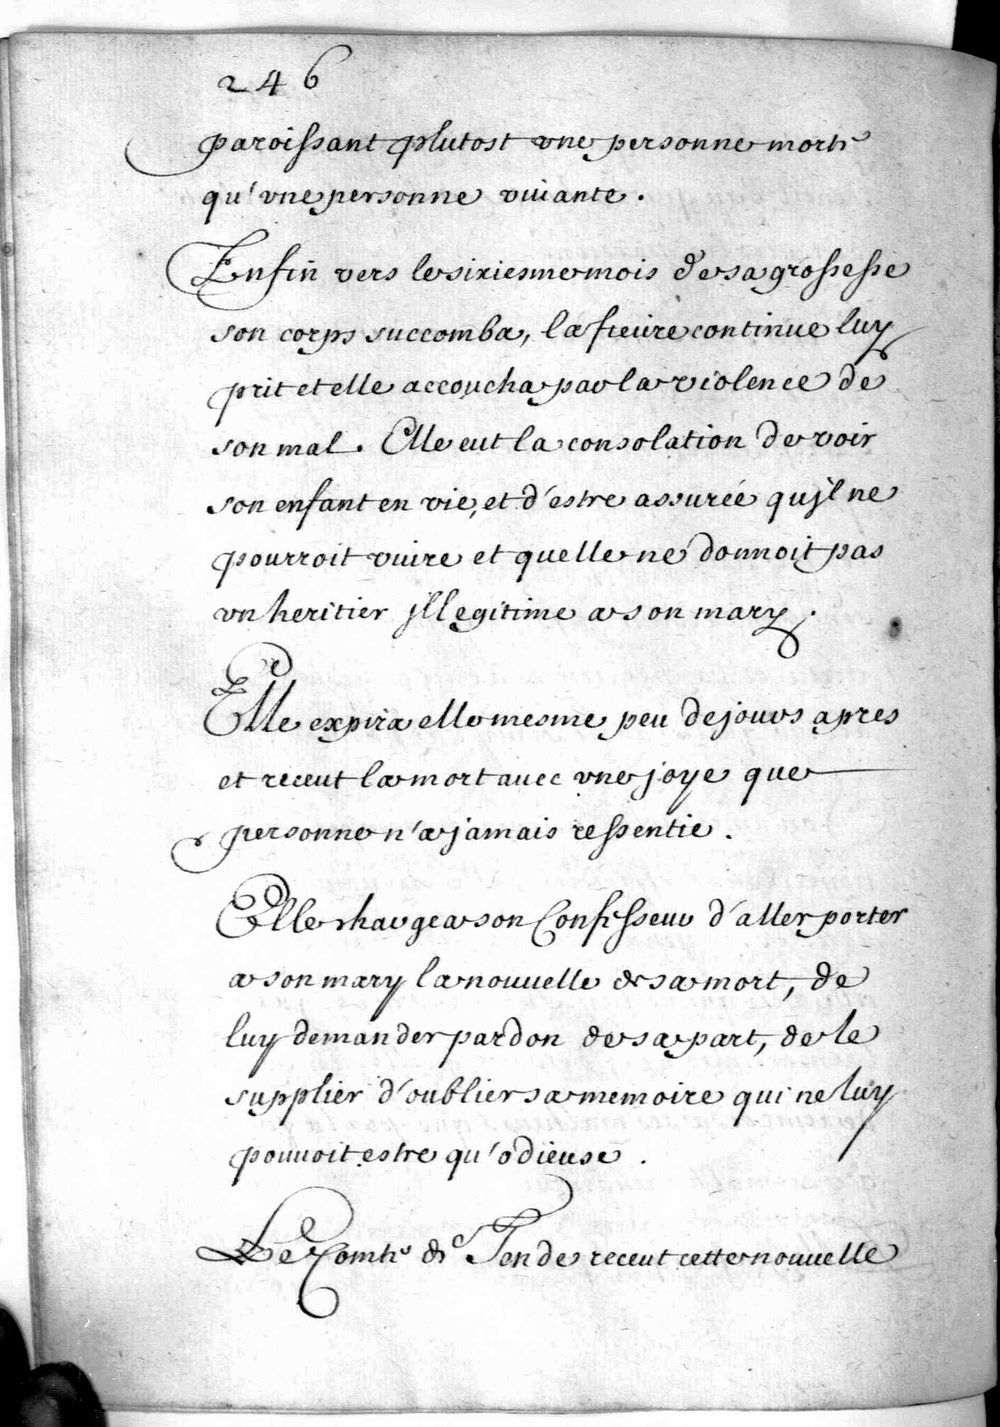 246
paroissant plutost vne personne morte
qu'vne personne viuante.
Enfin vers le sixiesme mois de sa grossesse
son corps succomba, la fieure continue luy
prit et elle accoucha par la violence de
son mal. Elle eut la consolation de voir
son enfant en vie, et d'estre assurée qu'jl ne
pourroit viure et quelle ne donnoit pas
vn heritier jllegitime a son mary.
Elle expira elle mesme peu de jours apres
et receut la mort auec vne joye que
personne n'a jamais ressentie.
Elle chargea son Confesseur d'aller porter
a son mary la nouuelle de sa mort, de
luy demander pardon de sa part, de le
supplier d'oublier sa memoire qui ne luy
pouuoit estre qu'odieuse.
Le Comte de Tende receut cette nouuelle